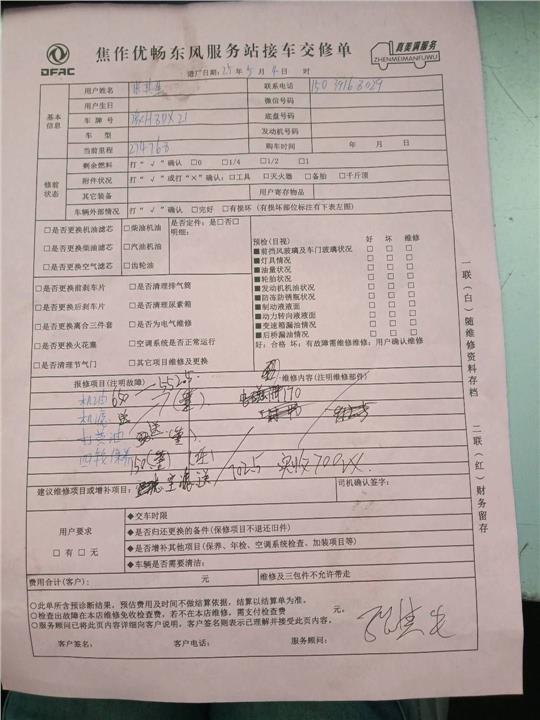 DFAC
焦作优畅东风服务站接车交修单
真美满服务
ZHENMEIMANFUWU
进厂日期: 25 年 5 月 4 日 时
基本信息
用户姓名 联系电话 150 3916 8029
用户生日 微信号码
车牌号 底盘号码
车型 发动机号码
当前里程 274768 购车时间 年 月 日
修前状态
剩余燃料 打“√”确认 □0 □1/4 □1/2 □1
附件状况 打“√”或打“×”确认:□工具 □灭火器 □备胎 □千斤顶
其它装备 用户寄存物品
车辆外部情况 打“√”确认 □完好 □有损坏(有损坏部位标注有下表左图)
□是否更换机油滤芯 □柴油机油
□是否更换柴油滤芯 □汽油机油
□是否更换空气滤芯 □齿轮油
是否定件:□是□否□
明细:
□是否更换前刹车片 □是否清理排气筒
□是否更换后刹车片 □是否清理尿素箱
□是否更换离合三件套 □是否为电气维修
□是否更换火花塞 □空调系统是否正常运行
□是否清理节气门 □其它项目维修及更换
预检(目视) 好 坏 维修
■前挡风玻璃及车门玻璃状况
■灯具情况
■油量状况
■轮胎状况
■发动机机油状况
■防冻防锈瓶状况
■制动液液面
■动力转向液液面
■变速箱漏油情况
■后桥漏油情况
好:合格 坏:有故障需维修维修:用户确认维修
报修项目(注明故障) 维修内容(注明维修部件)
机油 650
机滤 送
打黄油
四轮保养 150
170
7025 实收7000
建议维修项目或增补项目: 司机确认签字:
用户要求
□有 □无
◆交车时限
◆是否归还更换的备件(保修项目不退还旧件)
◆是否增补其他项目(保养、年检、空调系统检查、加装项目等)
◆车辆是否需要清洁:
费用合计(客户): 元 维修及三包件不允许带走
○此单所含预诊断结果,预估费用及时间不做结算依据,结算以结算单为准。
○检查出故障在本店维修免收检查费,若不在本店维修,需支付检查费 元。
○服务顾问已将此页内容详细向客户说明。客户签名则表示已理解并接受此页内容。
客户签名: 客户电话: 服务顾问:
一联(白)随维修资料存档
二联(红)财务留存